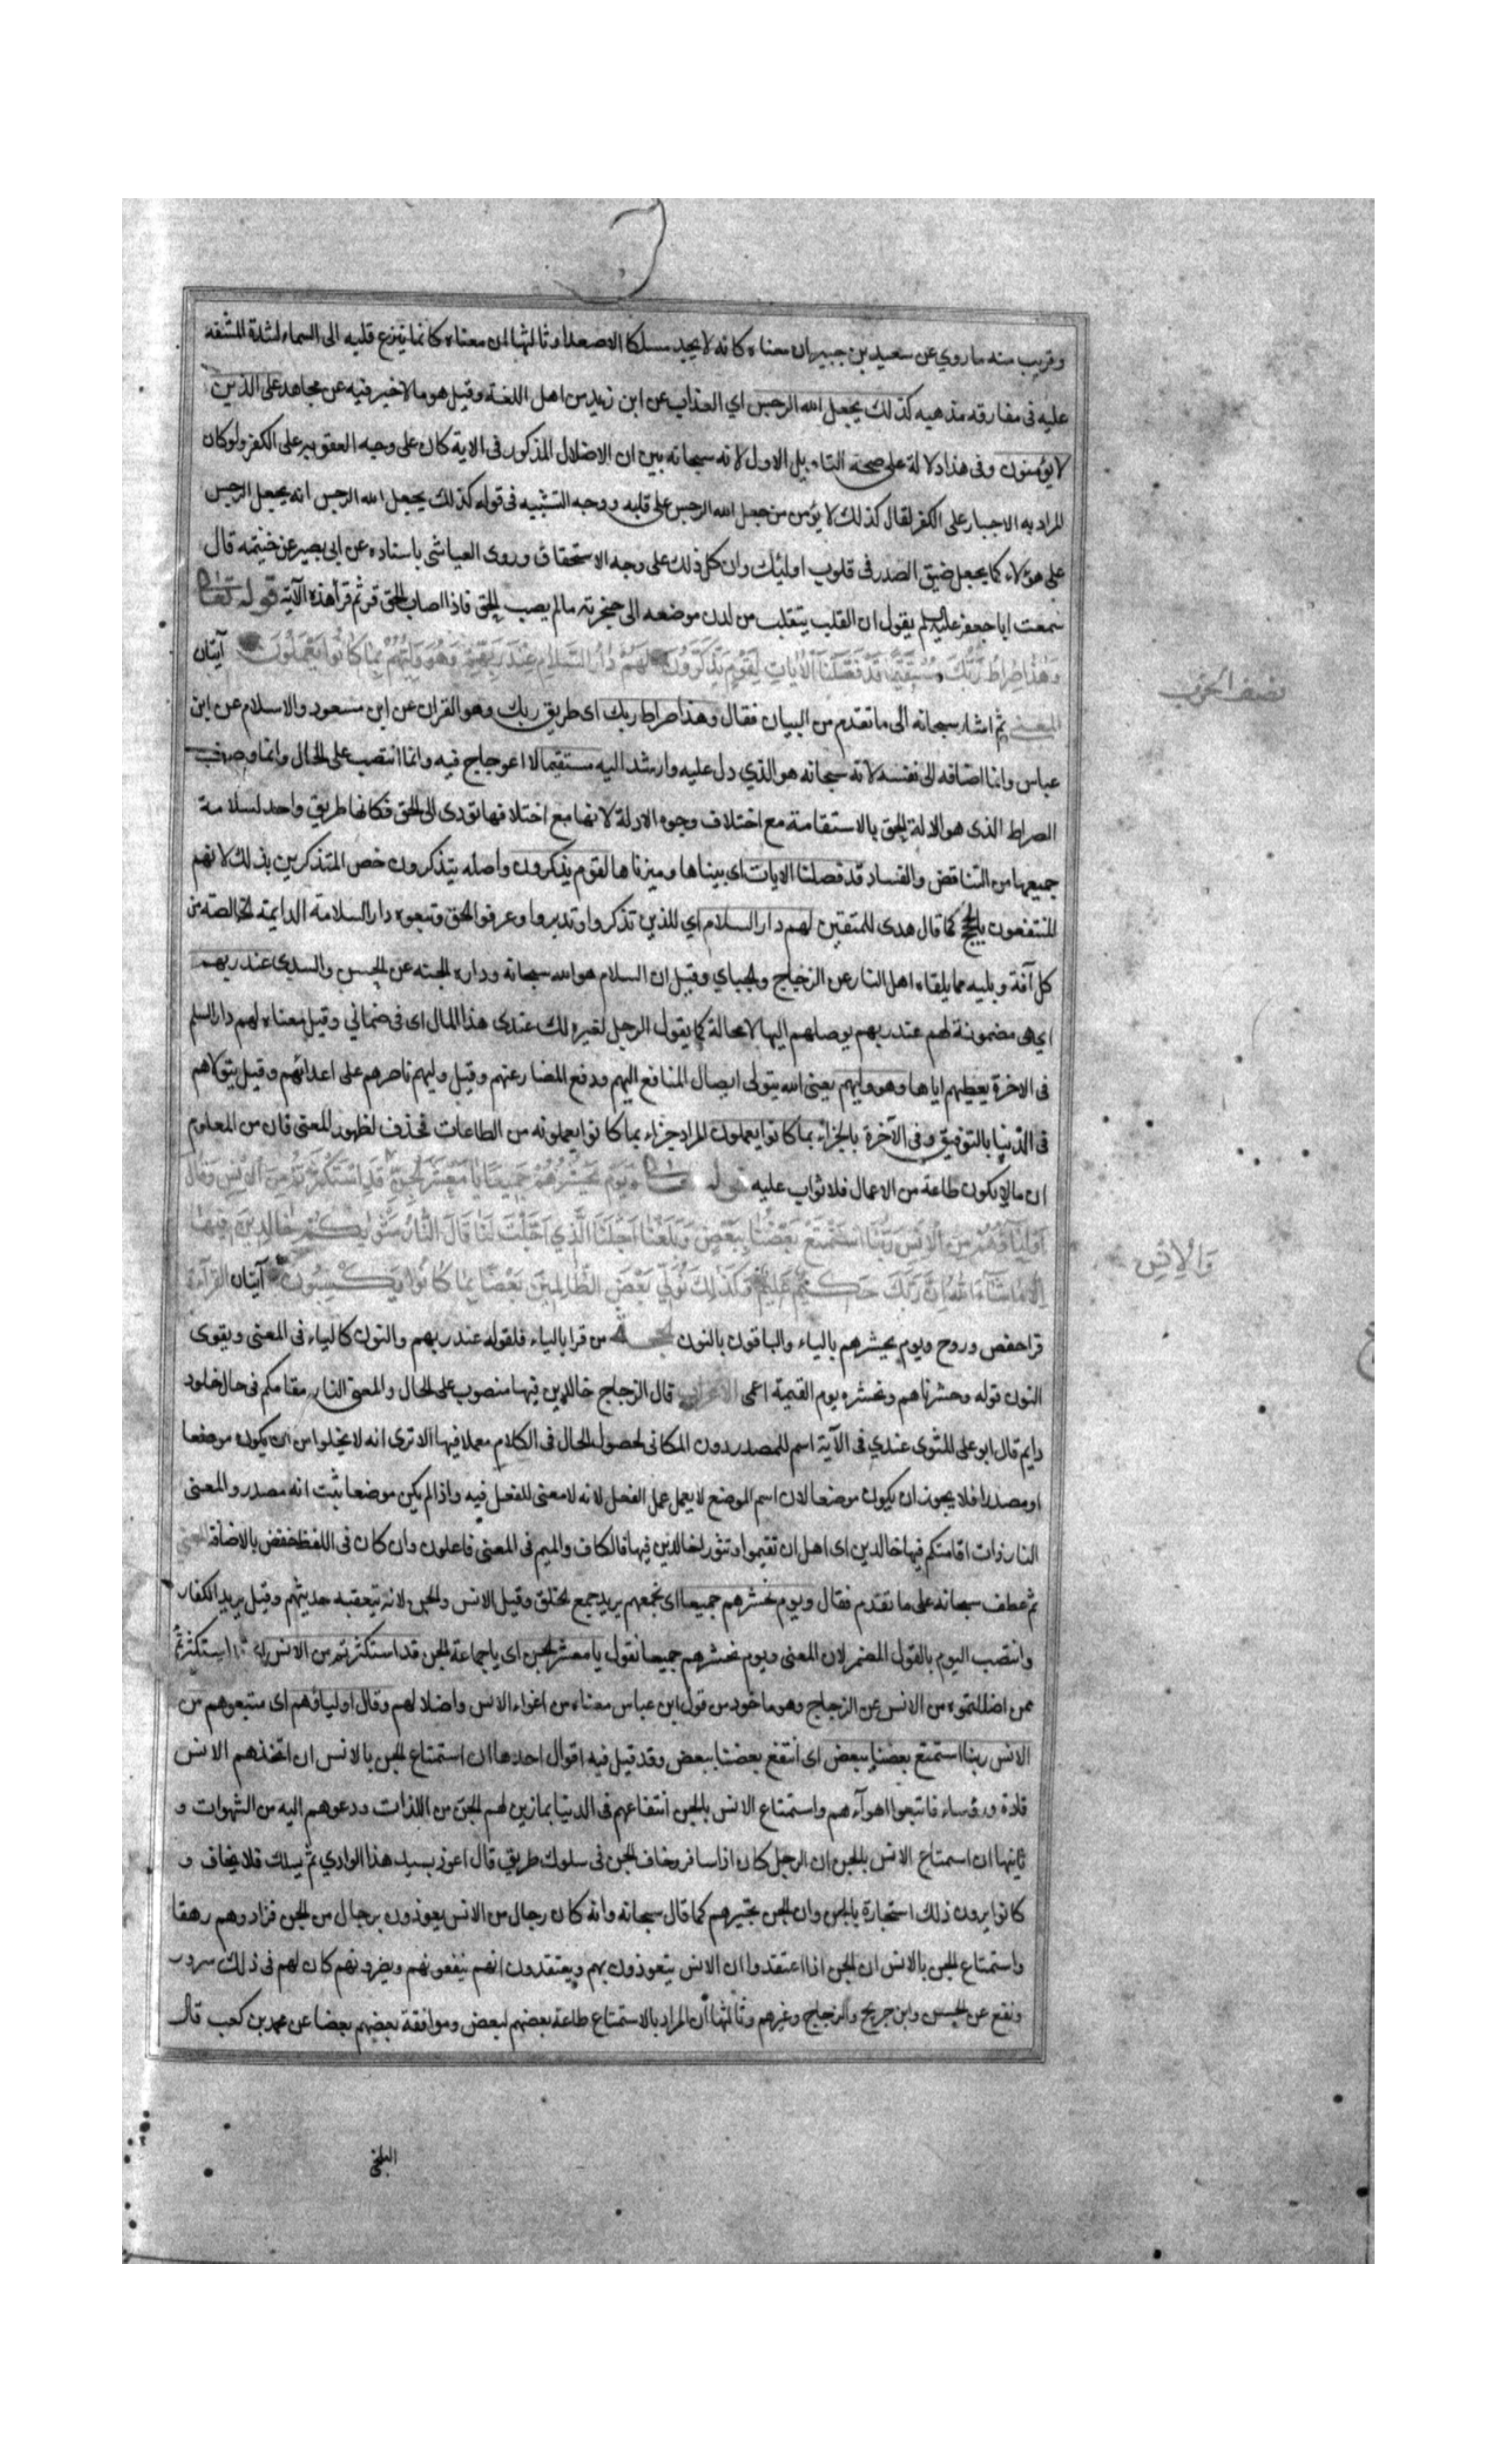 وقريب منه ما روي عن سعيد بن جبير ان معناه كانه لا يجد مسلكا الا صعدا وثالثها ان معناه كانما ينزع قلبه الى السماء لشدة المشقة
عليه فى مفارقه مذهبه كذلك يجعل الله الرجس اي العذاب عن ابن زيد من اهل اللغة وقيل هو ما لا خير فيه عن مجاهد على الذين
لا يؤمنون وفى هذا دلالة على صحة التاويل الاول لانه سبحانه بين ان الاضلال المذكور فى الاية كان على وجه العقوبه على الكفر ولو كان
المراد به الاجبار على الكفر لقال كذلك لا يؤمن من جعل الله الرجس على قلبه ووجه التشبيه فى قوله كذلك يجعل الله الرجس انه يجعل الرجس
على هؤلاء كما يجعل ضيق الصدر فى قلوب اولئك وان كل ذلك على وجه الاستحقاق وروى العياشى باسناده عن ابى بصير عن خيثمه قال
سمعت ابا جعفر عليه السلم يقول ان القلب يتقلب من لدن موضعه الى حنجرته ما لم يصب الحق فاذا اصاب الحق قر ثم قرأ هذه الآية قوله تعالى
وَهٰذَا صِرَاطُ رَبِّكَ مُسْتَقِيمًا قَدْ فَصَّلْنَا الْآيَاتِ لِقَوْمٍ يَذَّكَّرُونَ لَهُمْ دَارُ السَّلَامِ عِنْدَ رَبِّهِمْ وَهُوَ وَلِيُّهُمْ بِمَا كَانُوا يَعْمَلُونَ آيتان
المعنى ثم اشار سبحانه الى ما تقدم من البيان فقال وهذا صراط ربك اى طريق ربك وهو القران عن ابن مسعود والاسلام عن ابن
عباس وانما اضافه الى نفسه لانه سبحانه هو الذي دل عليه وارشد اليه مستقيما لا اعوجاج فيه وانما انتصب على الحال وانما وصف
الصراط الذى هو الادلة الحق بالاستقامة مع اختلاف وجوه الادلة لانها مع اختلافها تودى الى الحق فكانها طريق واحد لسلامة
جميعها من التناقض والفساد قد فصلنا الايات اى بيناها وميزناها لقوم يذكرون واصله يتذكرون خص المتذكرين بذلك لانهم
المنتفعون بالحجج كما قال هدى للمتقين لهم دار السلام اي للذين تذكروا وتدبروا وعرفوا الحق وتبعوه دار السلامة الدايمة الخالصة من
كل آفة وبليه مما يلقاه اهل النار عن الزجاج والجباي وقيل ان السلام هو الله سبحانه وداره الجنه عن الحسن والسدى عند ربهم
اي هى مضمونة لهم عند ربهم يوصلهم اليها لا محالة كما يقول الرجل لغيره لك عندى هذا المال اى فى ضمانى وقيل معناه لهم دار السلم
فى الاخرة يعطيهم اياها وهو وليهم يعنى الله يتولى ايصال المنافع اليهم ودفع المضار عنهم وقيل وليهم ناصرهم على اعدائهم وقيل يتولاهم
فى الدنيا بالتوفيق وفى الآخرة بالجزاء بما كانوا يعملون المراد جزاء بما كانوا يعملونه من الطاعات فحذف لظهور المعنى فان من المعلوم
ان ما لا يكون طاعة من الاعمال فلا ثواب عليه قوله تعالى وَيَوْمَ يَحْشُرُهُمْ جَمِيعًا يَا مَعْشَرَ الْجِنِّ قَدِ اسْتَكْثَرْتُمْ مِنَ الْاِنْسِ وَقَالَ
اَوْلِيَاؤُهُمْ مِنَ الْاِنْسِ رَبَّنَا اسْتَمْتَعَ بَعْضُنَا بِبَعْضٍ وَبَلَغْنَا اَجَلَنَا الَّذِي اَجَّلْتَ لَنَا قَالَ النَّارُ مَثْوٰيكُمْ خَالِدِينَ فِيهَا
اِلَّا مَا شَاءَ اللّٰهُ اِنَّ رَبَّكَ حَكِيمٌ عَلِيمٌ وَكَذٰلِكَ نُوَلِّي بَعْضَ الظَّالِمِينَ بَعْضًا بِمَا كَانُوا يَكْسِبُونَ آيتان القراءة
قرا حفص وروح ويوم يحشرهم بالياء والباقون بالنون الحجة من قرا بالياء فلقوله عند ربهم والنون كالياء فى المعنى ويقوى
النون قوله وحشرناهم ونحشره يوم القيمة اعمى الاعراب قال الزجاج خالدين فيها منصوب على الحال والمعنى النار مقامكم فى حال خلود
دايم قال ابو على المثوى عندي فى الآية اسم للمصدر دون المكانى لحصول الحال فى الكلام معملا فيها الا ترى انه لا يخلوا من ان يكون موضعا
او مصدرا فلا يجوز ان يكون موضعا لان اسم الموضع لا يعمل عمل الفعل لانه لا معنى للفعل فيه واذا لم يكن موضعا ثبت انه مصدر والمعنى
النار ذات اقامتكم فيها خالدين اى اهل ان تقيموا وتثووا خالدين فيها فالكاف والميم فى المعنى فاعلون وان كان فى اللفظ خفض بالاضافة المعنى
ثم عطف سبحانه على ما تقدم فقال ويوم نحشرهم جميعا اى نجمعهم يريد جمع الخلق وقيل الانس والجن لانه يتعقبه حديثهم وقيل يريد الكفار
وانتصب اليوم بالقول المضمر لان المعنى ويوم نحشرهم جميعا نقول يا معشر الجن اى يا جماعة الجن قد استكثرتم من الانس استكثرتم
ممن اضللتموه من الانس عن الزجاج وهو ماخود من قول ابن عباس معناه من اغواء الانس واضلالهم وقال اولياؤهم اى متبعوهم من
الانس ربنا استمتع بعضنا ببعض اى انتفع بعضنا ببعض وقد قيل فيه اقوال احدها ان استمتاع الجن بالانس ان اتخذهم الانس
قادة ورؤساء فاتبعوا اهوآءهم واستمتاع الانس بالجن انتفاعهم فى الدنيا بما زين لهم الجن من اللذات ودعوهم اليه من الشهوات و
ثانيها ان استمتاع الانس بالجن ان الرجل كان اذا سافر وخاف الجن فى سلوك طريق قال اعوذ بسيد هذا الوادي ثم يسلك فلا يخاف و
كانوا يرون ذلك استجارة بالجن وان الجن تجيرهم كما قال سبحانه وانه كان رجال من الانس يعوذون برجال من الجن فزادوهم رهقا
واستمتاع الجن بالانس ان الجن اذا اعتقدوا ان الانس يتعوذون بهم ويعتقدون انهم ينفعونهم ويضرونهم كان لهم فى ذلك سرور
ونفع عن الحسن وابن جريج والزجاج وغيرهم وثالثها ان المراد بالاستمتاع طاعة بعضهم لبعض وموافقة بعضهم بعضا عن محمد بن كعب قال
البلخى
نصف الحزب
وَالْاِنْسِ